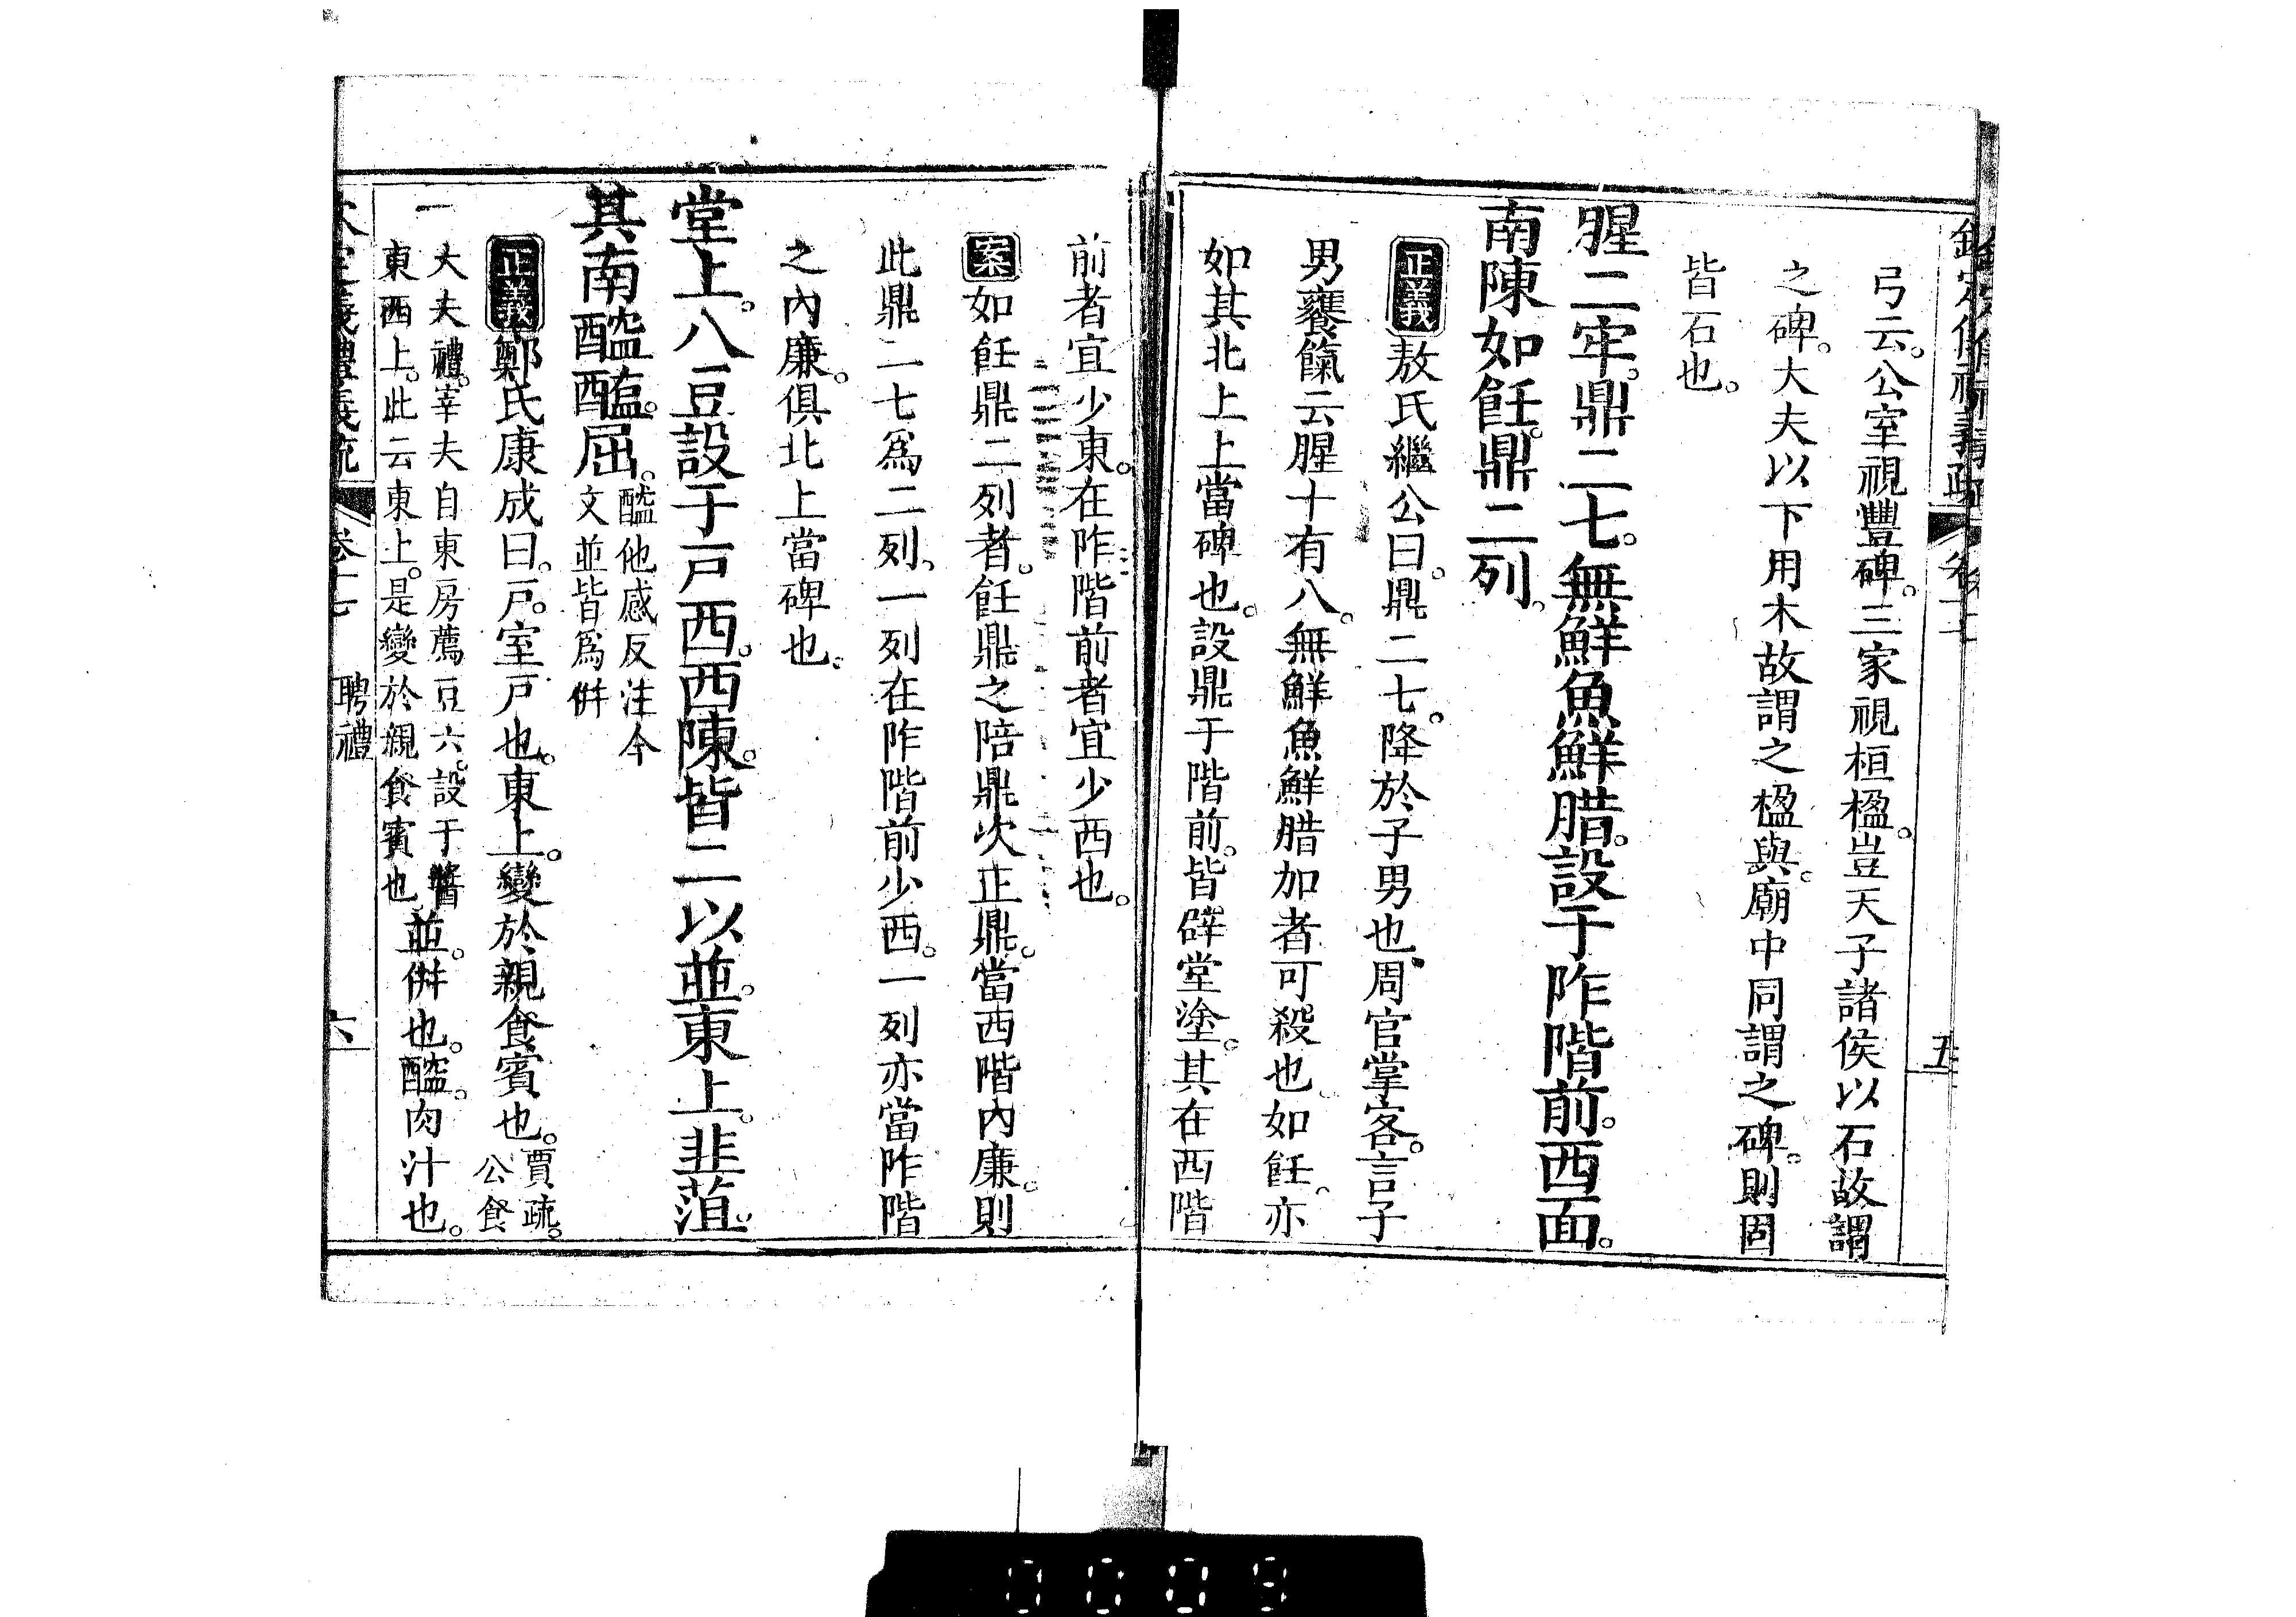 弓云。公室視豐碑。三家視桓楹。豈天子諸侯以石故謂
之碑。大夫以下用木故謂之楹與。廟中同謂之碑。則固
皆石也。
腥二牢。鼎二七。無鮮魚鮮腊。設于阼階前。西面。
南陳如飪。鼎二列。
正義敖氏繼公曰。鼎二七。降於子男也。周官掌客。言子
男饔餼云腥十有八。無鮮魚鮮腊加者可殺也。如飪。亦
如其北上上當碑也。設鼎于階前。皆辟堂塗。其在西階
前者宜少東。在阼階前者宜少西也。
案如飪鼎二列者。飪鼎之陪鼎次正鼎。當西階內廉。則
此鼎二七為二列。一列在阼階前少西。一列亦當阼階
之內廉。俱北上當碑也。
堂上。八豆設于戶西。西陳。皆二以並。東上。韭菹。
其南醓醢。屈。醓他感反注今
文並皆為併
正義鄭氏康成曰。戶。室戶也。東上。變於親食賓也。賈疏。
公食
大夫禮。宰夫自東房薦豆六。設于醬
東西上。此云東上。是變於親食賓也。並。併也。醓。肉汁也。
一
卷十七 聘禮
六
五